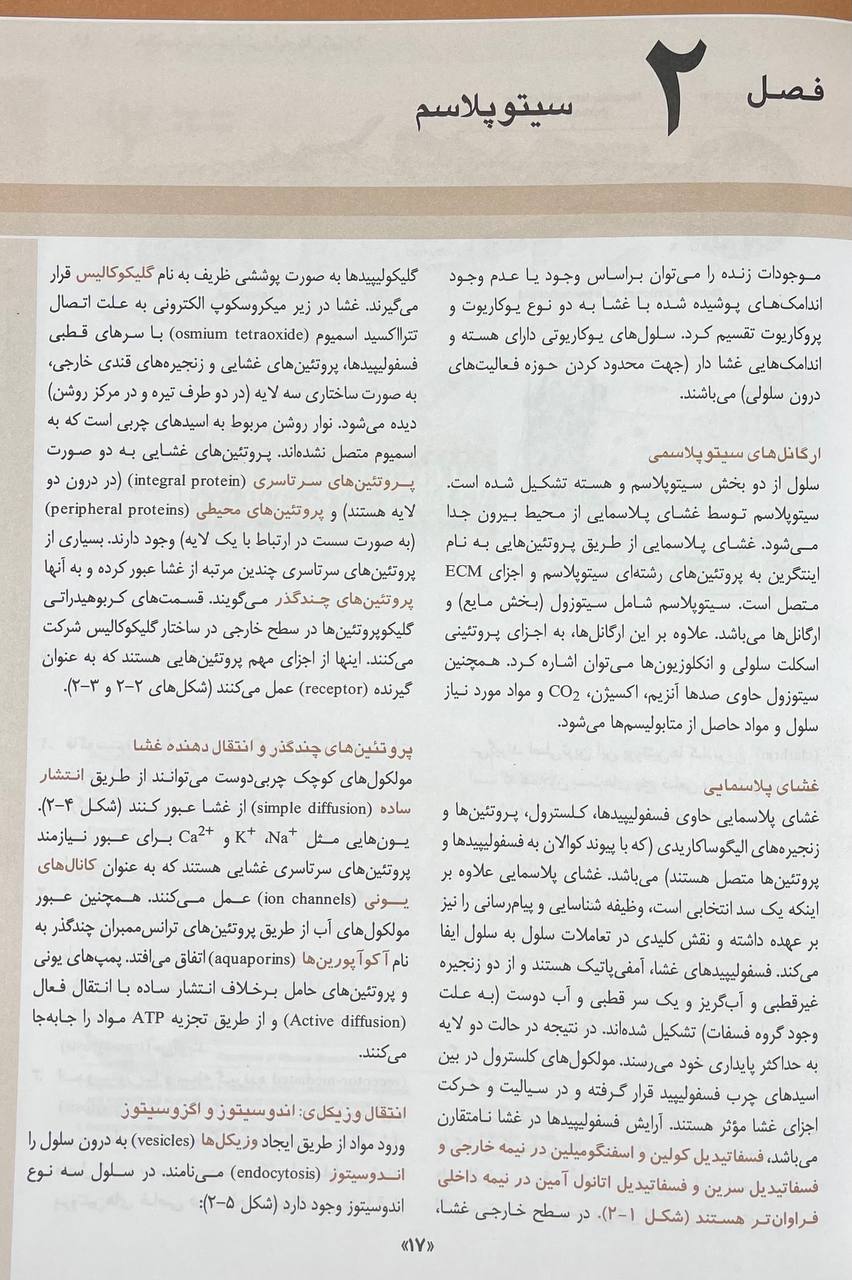 فصل ۲ سیتوپلاسم
موجودات زنده را می‌توان براساس وجود یا عدم وجود
اندامک‌های پوشیده شده با غشا به دو نوع یوکاریوت و
پروکاریوت تقسیم کرد. سلول‌های یوکاریوتی دارای هسته و
اندامک‌هایی غشا دار (جهت محدود کردن حوزه فعالیت‌های
درون سلولی) می‌باشند.
ارگانل‌های سیتوپلاسمی
سلول از دو بخش سیتوپلاسم و هسته تشکیل شده است.
سیتوپلاسم توسط غشای پلاسمایی از محیط بیرون جدا
می‌شود. غشای پلاسمایی از طریق پروتئین‌هایی به نام
اینتگرین به پروتئین‌های رشته‌ای سیتوپلاسم و اجزای ECM
متصل است. سیتوپلاسم شامل سیتوزول (بخش مایع) و
ارگانل‌ها می‌باشد. علاوه بر این ارگانل‌ها، به اجزای پروتئینی
اسکلت سلولی و انکلوزیون‌ها می‌توان اشاره کرد. همچنین
سیتوزول حاوی صدها آنزیم، اکسیژن، CO2 و مواد مورد نیاز
سلول و مواد حاصل از متابولیسم‌ها می‌شود.
غشای پلاسمایی
غشای پلاسمایی حاوی فسفولیپیدها، کلسترول، پروتئین‌ها و
زنجیره‌های الیگوساکاریدی (که با پیوند کوالان به فسفولیپیدها و
پروتئین‌ها متصل هستند) می‌باشد. غشای پلاسمایی علاوه بر
اینکه یک سد انتخابی است، وظیفه شناسایی و پیام‌رسانی را نیز
بر عهده داشته و نقش کلیدی در تعاملات سلول به سلول ایفا
می‌کند. فسفولیپیدهای غشا، آمفی‌پاتیک هستند و از دو زنجیره
غیرقطبی و آب‌گریز و یک سر قطبی و آب دوست (به علت
وجود گروه فسفات) تشکیل شده‌اند. در نتیجه در حالت دو لایه
به حداکثر پایداری خود می‌رسند. مولکول‌های کلسترول در بین
اسیدهای چرب فسفولیپید قرار گرفته و در سیالیت و حرکت
اجزای غشا مؤثر هستند. آرایش فسفولیپیدها در غشا نامتقارن
می‌باشد، فسفاتیدیل کولین و اسفنگومیلین در نیمه خارجی و
فسفاتیدیل سرین و فسفاتیدیل اتانول آمین در نیمه داخلی
فراوان‌تر هستند (شکل ۱-۲). در سطح خارجی غشا،
گلیکولیپیدها به صورت پوششی ظریف به نام گلیکوکالیس قرار
می‌گیرند. غشا در زیر میکروسکوپ الکترونی به علت اتصال
تترااکسید اسمیوم (osmium tetraoxide) با سرهای قطبی
فسفولیپیدها، پروتئین‌های غشایی و زنجیره‌های قندی خارجی،
به صورت ساختاری سه لایه (در دو طرف تیره و در مرکز روشن)
دیده می‌شود. نوار روشن مربوط به اسیدهای چربی است که به
اسمیوم متصل نشده‌اند. پروتئین‌های غشایی به دو صورت
پروتئین‌های سرتاسری (integral protein) (در درون دو
لایه هستند) و پروتئین‌های محیطی (peripheral proteins)
(به صورت سست در ارتباط با یک لایه) وجود دارند. بسیاری از
پروتئین‌های سرتاسری چندین مرتبه از غشا عبور کرده و به آنها
پروتئین‌های چندگذر می‌گویند. قسمت‌های کربوهیدراتی
گلیکوپروتئین‌ها در سطح خارجی در ساختار گلیکوکالیس شرکت
می‌کنند. اینها از اجزای مهم پروتئین‌هایی هستند که به عنوان
گیرنده (receptor) عمل می‌کنند (شکل‌های ۲-۲ و ۳-۲).
پروتئین‌های چندگذر و انتقال دهنده غشا
مولکول‌های کوچک چربی‌دوست می‌توانند از طریق انتشار
ساده (simple diffusion) از غشا عبور کنند (شکل ۴-۲).
یون‌هایی مثل Na+، K+ و Ca2+ برای عبور نیازمند
پروتئین‌های سرتاسری غشایی هستند که به عنوان کانال‌های
یونی (ion channels) عمل می‌کنند. همچنین عبور
مولکول‌های آب از طریق پروتئین‌های ترانس‌ممبران چندگذر به
نام آکوآپورین‌ها (aquaporins) اتفاق می‌افتد. پمپ‌های یونی
و پروتئین‌های حامل برخلاف انتشار ساده با انتقال فعال
(Active diffusion) و از طریق تجزیه ATP مواد را جابه‌جا
می‌کنند.
انتقال وزیکلی: اندوسیتوز و اگزوسیتوز
ورود مواد از طریق ایجاد وزیکل‌ها (vesicles) به درون سلول را
اندوسیتوز (endocytosis) می‌نامند. در سلول سه نوع
اندوسیتوز وجود دارد (شکل ۵-۲):
«۱۷»